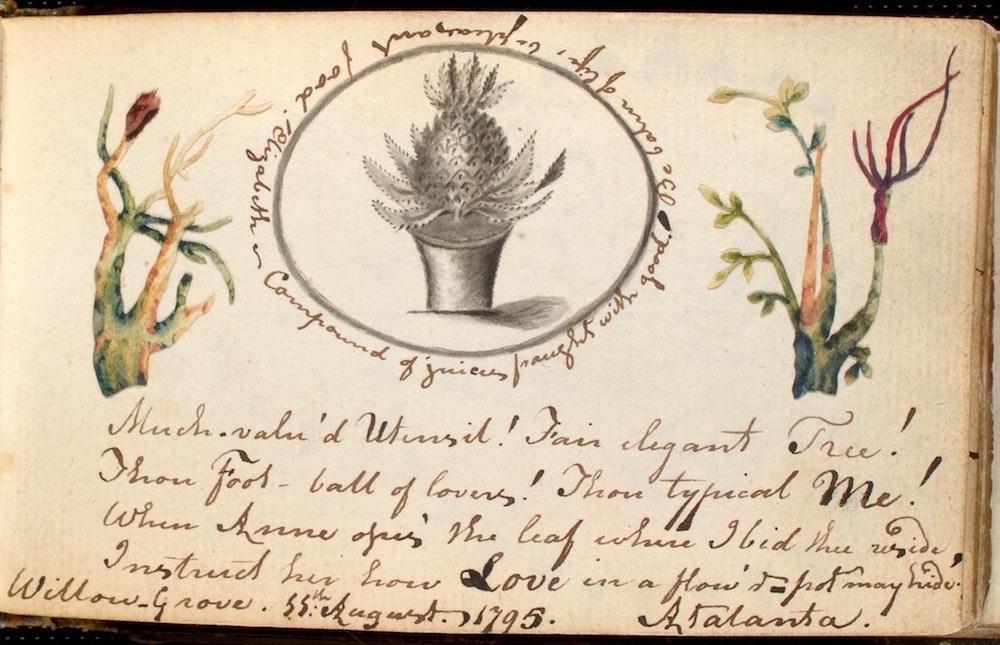 Compound of juices fraught with good!
Be balm of life, be pleasant food! Elizabeth
Much-valu'd Utensil! Fair elegant Tree!
Thou Foot-ball of lovers! Thou typical Me!
When Anne ope's the leaf where I bid thee reside,
Instruct her how Love in a flow'r-pot may hide.
Willow-Grove. 11th August. 1795. Atalanta.